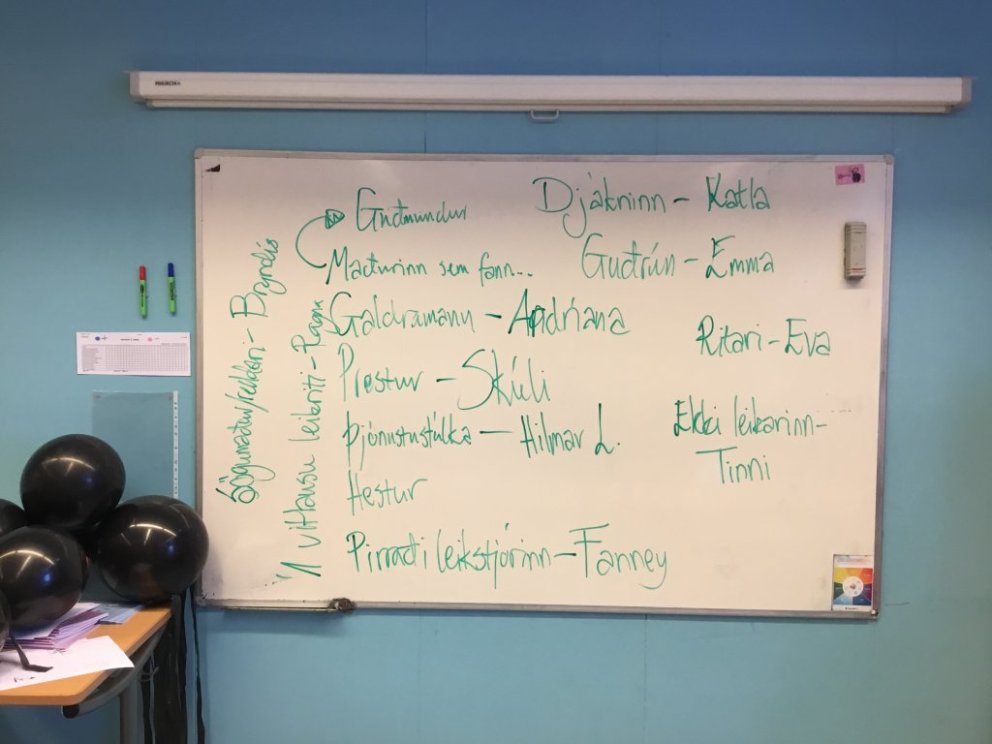 Guðmundur
Maðurinn sem fann...
Galdramann - Andríana
Prestur - Skúli
Þjónustustúlka - Hilmar L.
Hestur
Pirraði leikstjórinn - Fanney
Djákninn - Katla
Guðrún - Emma
Ritari - Eva
Ekki leikarinn -
Tinni
Sögumaður/ - Bryndís
leikriti -